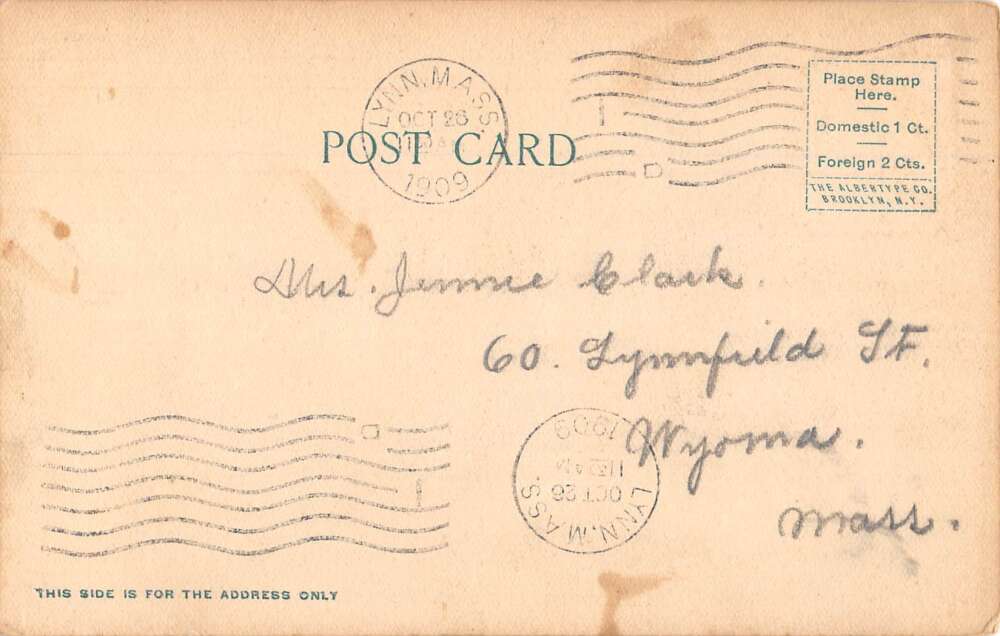 LYNN, MASS.
OCT 26
1909
POST CARD
Place Stamp
Here.
Domestic 1 Ct.
Foreign 2 Cts.
THE ALBERTYPE CO.
BROOKLYN, N.Y.
D
Mrs. Jennie Clark.
60. Lynnfield St.
Wyoma.
Mass.
LYNN, MASS.
OCT 26
11 30 AM
1909
D
THIS SIDE IS FOR THE ADDRESS ONLY